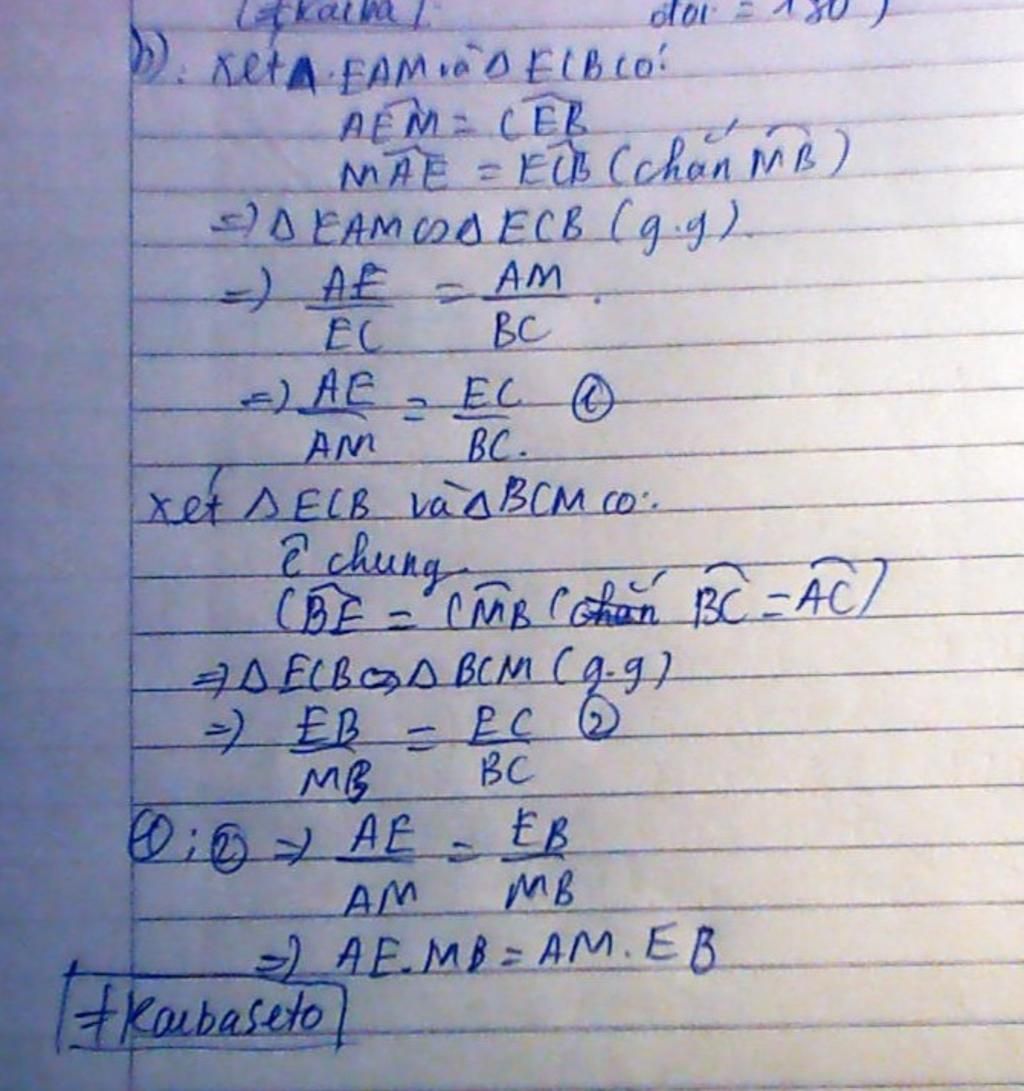 (#kaiba). đối = 180°)
b). xét Δ.EAM và Δ ECB có:
AÊM = CÊB
MÂE = EĈB (chắn M͡B)
=> Δ EAM ∽ Δ ECB (g.g).
=> AE/EC = AM/BC.
=> AE/AM = EC/BC. ①
xét Δ ECB và Δ BCM có:.
Ĉ chung
CB̂E = CM̂B (chắn B͡C = A͡C)
=> Δ ECB ∽ Δ BCM (g.g)
=> EB/MB = EC/BC ②
①; ② => AE/AM = EB/MB
=> AE.MB = AM.EB
#Kaibaseto